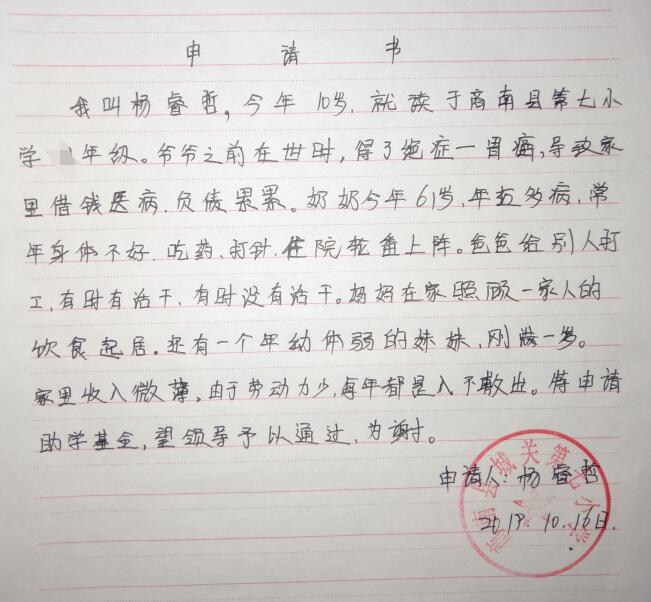 申请书
我叫杨睿哲，今年10岁，就读于商南县第七小
学 年级。爷爷之前在世时，得了绝症—胃癌，导致家
里借钱医病，负债累累。奶奶今年61岁，年迈多病，常
年身体不好，吃药、打针、住院轮番上阵。爸爸给别人打
工，有时有活干，有时没有活干。妈妈在家照顾一家人的
饮食起居。还有一个年幼体弱的妹妹，刚满一岁。
家里收入微薄，由于劳动力少，每年都是入不敷出。特申请
助学基金，望领导予以通过，为谢。
申请人：杨睿哲
2019.10.16日.
商南县城关第七小学